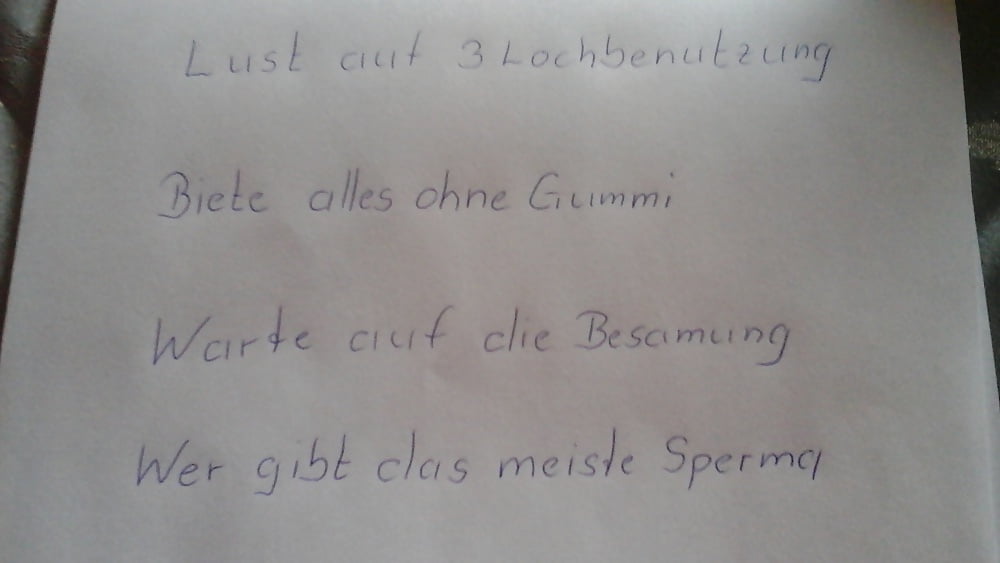 Lust auf 3 Lochbenutzung
Biete alles ohne Gummi
Warte auf die Besamung
Wer gibt das meiste Sperma